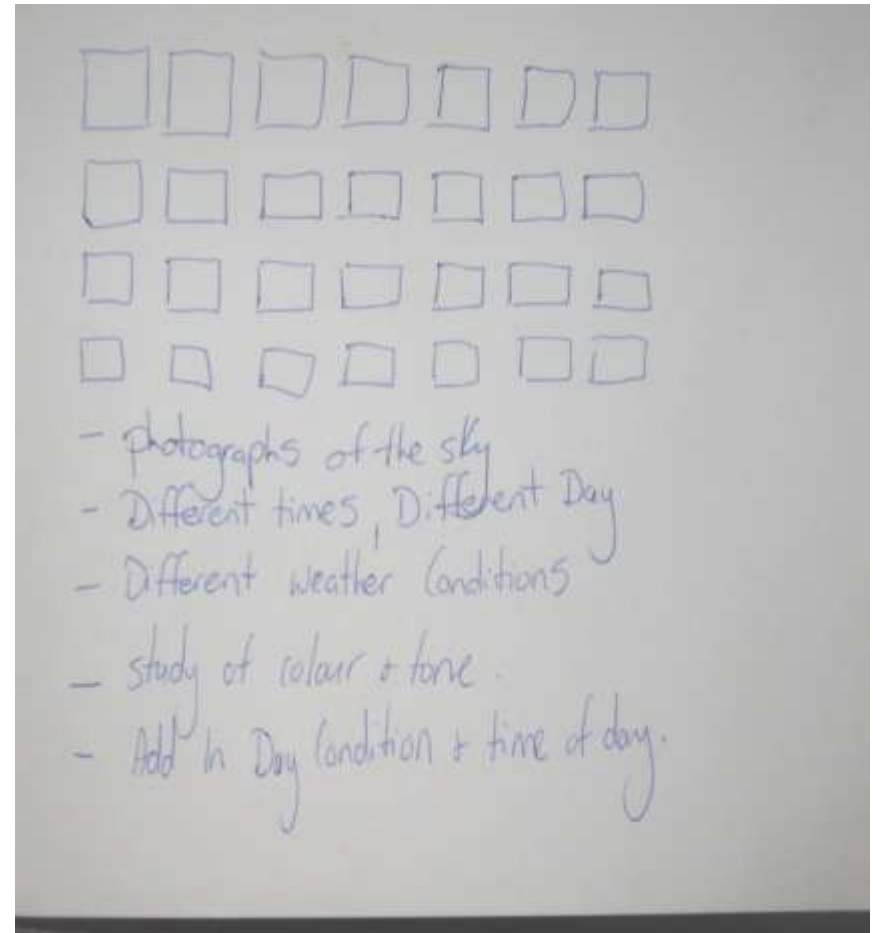 - photographs of the sky
- Different times, Different Day
- Different weather Conditions
- study of colour + tone.
- Add in Day Condition + time of day.